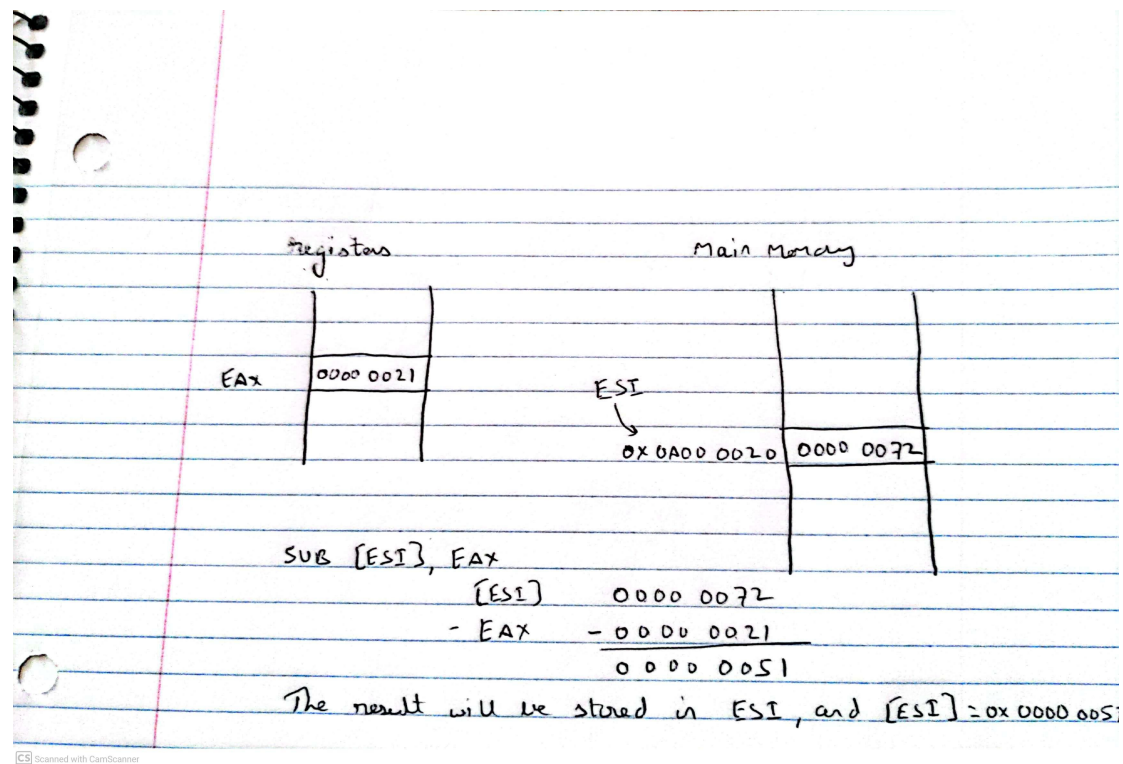 Registers
Main Memory
EAX
0000 0021
ESI
0X 0A00 0020
0000 0072
SUB [ESI], EAX
[ESI] 0000 0072
- EAX - 0000 0021
0000 0051
The result will be stored in ESI, and [ESI] = 0x 0000 005
CS Scanned with CamScanner